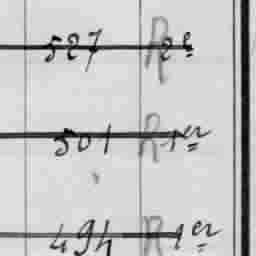 527 R 2e
501 R 1er
494 R 1er